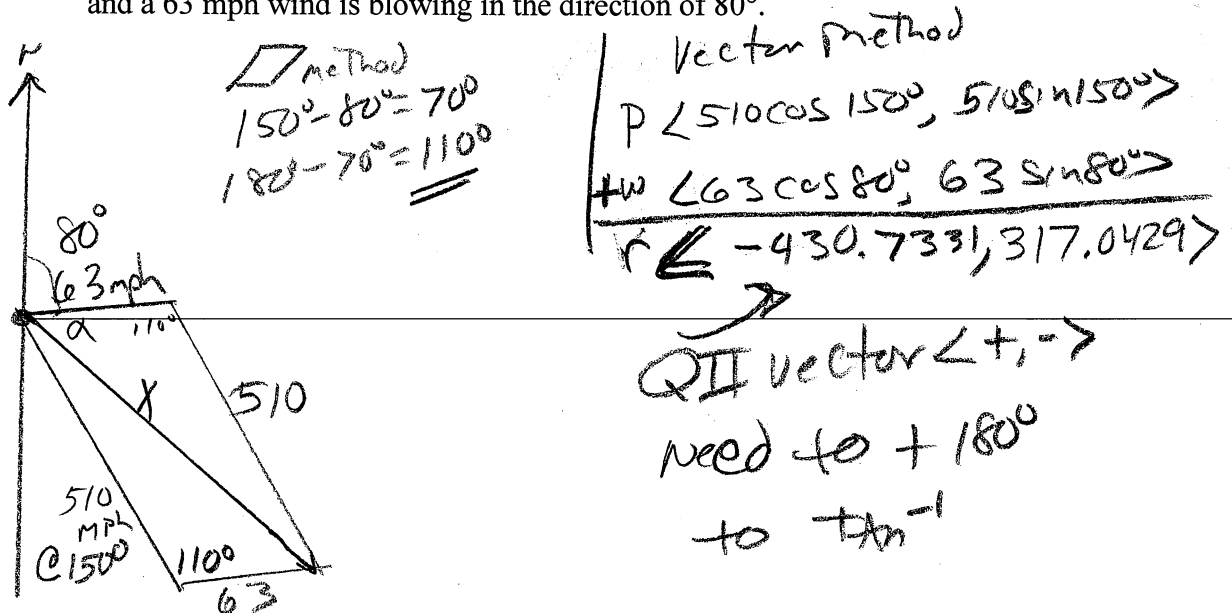 and a 63 mph wind is blowing in the direction of 80°.
N
▱ method
150° - 80° = 70°
180° - 70° = 110°
80°
63 mph
α 110°
X
510
510
mph
@150°
110°
63
Vector method
P <510 cos 150°, 510 sin 150°>
+w <63 cos 80°, 63 sin 80°>
r < -430.7331, 317.0429>
QII vector <+, ->
need to + 180°
to tan⁻¹